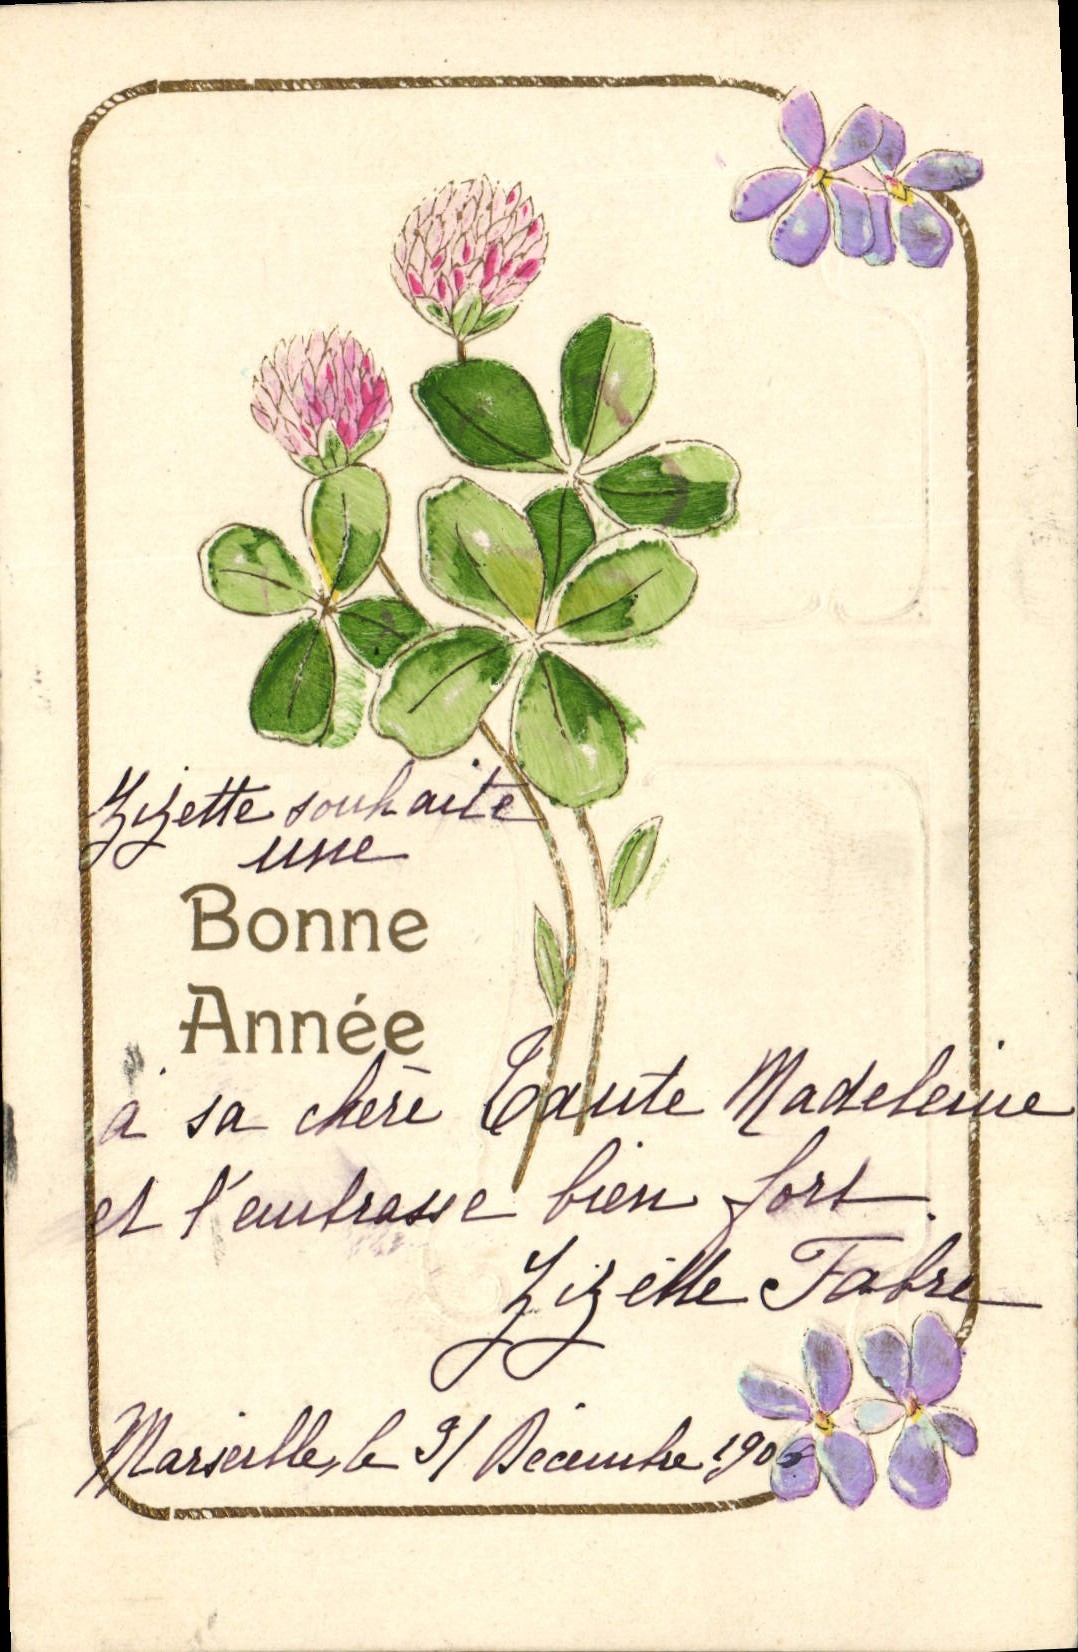 Zizette souhaite
une
Bonne
Année
à sa chère Tante Madeleine
et l'embrasse bien fort.
Zizette Fabre
Marseille, le 31 Décembre 190